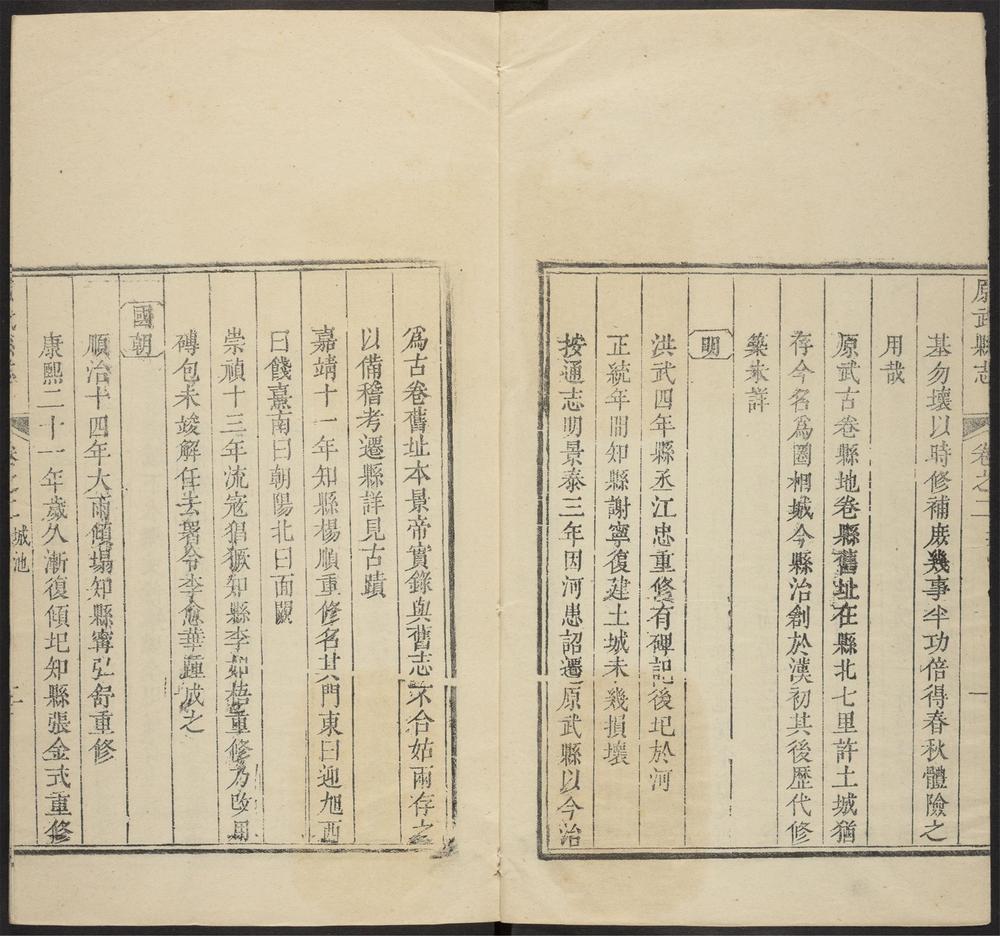 原武縣志 卷之二
基勿壞以時修補庶幾事半功倍得春秋體險之
用哉
原武古卷縣地卷縣舊址在縣北七里許土城猶
存今名爲圈相城今縣治創於漢初其後歷代修
築未詳
明
洪武四年縣丞江忠重修有碑記後圮於河
正統年間知縣謝寧復建土城未幾損壞
按通志明景泰三年因河患詔遷原武縣以今治
爲古卷舊址本景帝實錄與舊志不合姑兩存之
以備稽考遷縣詳見古蹟
嘉靖十一年知縣楊順重修名其門東曰迎旭西
曰餞熹南曰朝陽北曰面闕
崇禎十三年流寇猖獗知縣李如梧重修乃改用
磚包未竣解任去署令李愈華踵成之
國朝
順治十四年大雨傾塌知縣寗弘舒重修
康熙二十一年歲久漸復傾圮知縣張金式重修
卷之二 城池 二